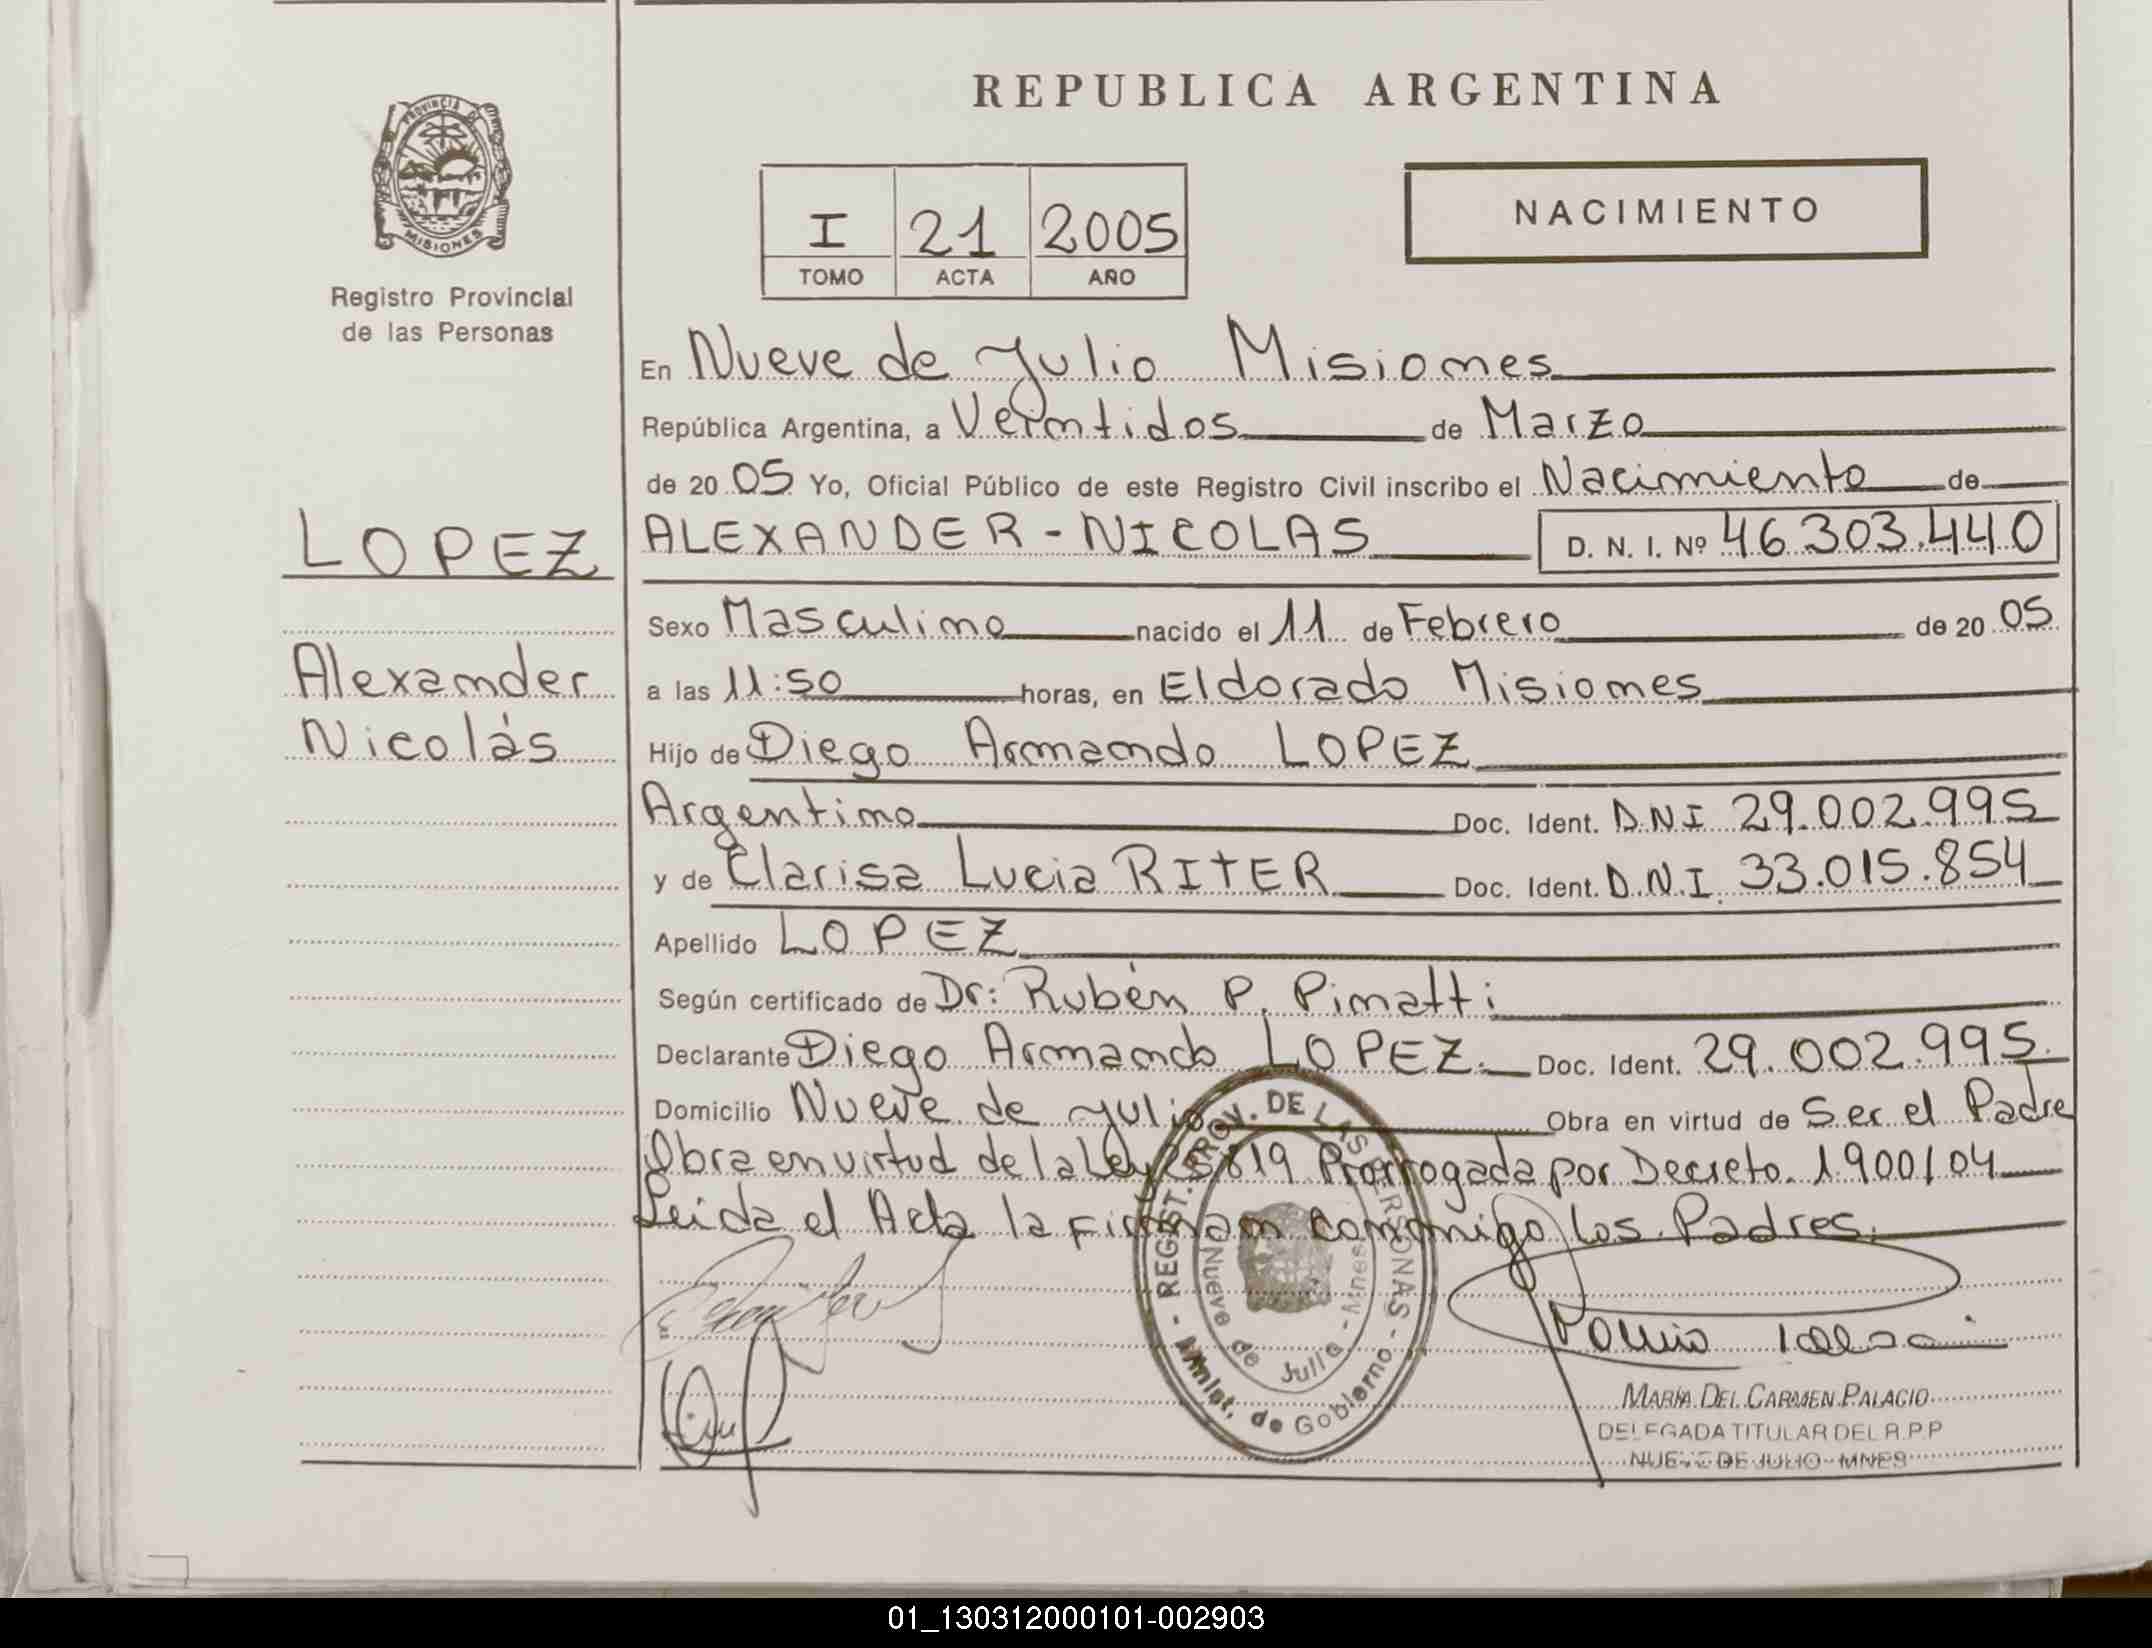 PROVINCIA DE
MISIONES
Registro Provincial
de las Personas
LOPEZ
Alexander
Nicolás
REPUBLICA ARGENTINA
I 21 2005
TOMO ACTA AÑO
NACIMIENTO
En Nueve de Julio Misiones
República Argentina, a Veintidos de Marzo
de 20 05 Yo, Oficial Público de este Registro Civil inscribo el Nacimiento de
ALEXANDER - NICOLAS D. N. I. Nº 46.303.440
Sexo Masculino nacido el 11 de Febrero de 20 05
a las 11:50 horas, en Eldorado Misiones
Hijo de Diego Armando LOPEZ
Argentino Doc. Ident. DNI 29.002.995
y de Clarisa Lucia RITER Doc. Ident. D.N.I. 33.015.854
Apellido LOPEZ
Según certificado de Dr: Rubén P. Pinatti
Declarante Diego Armando LOPEZ. Doc. Ident. 29.002.995.
Domicilio Nueve de Julio Obra en virtud de Ser el Padre
Obra en virtud de la Ley 25.819 Prorrogada por Decreto 1900/04
Leida el Acta la Firman conmigo los Padres.
REGIST. PROV. DE LAS PERSONAS
Nueve de Julio - Mnes
Minist. de Gobierno
MARÍA DEL CARMEN PALACIO
DELEGADA TITULAR DEL R.P.P
NUEVE DE JULIO - MNES
01_130312000101-002903